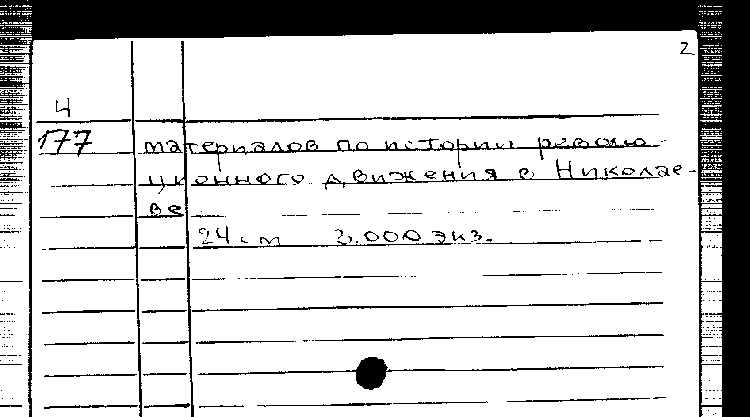 2
4
177
материалов по истории револю-
ционного движения в Николае-
ве
24 см 3.000 экз.